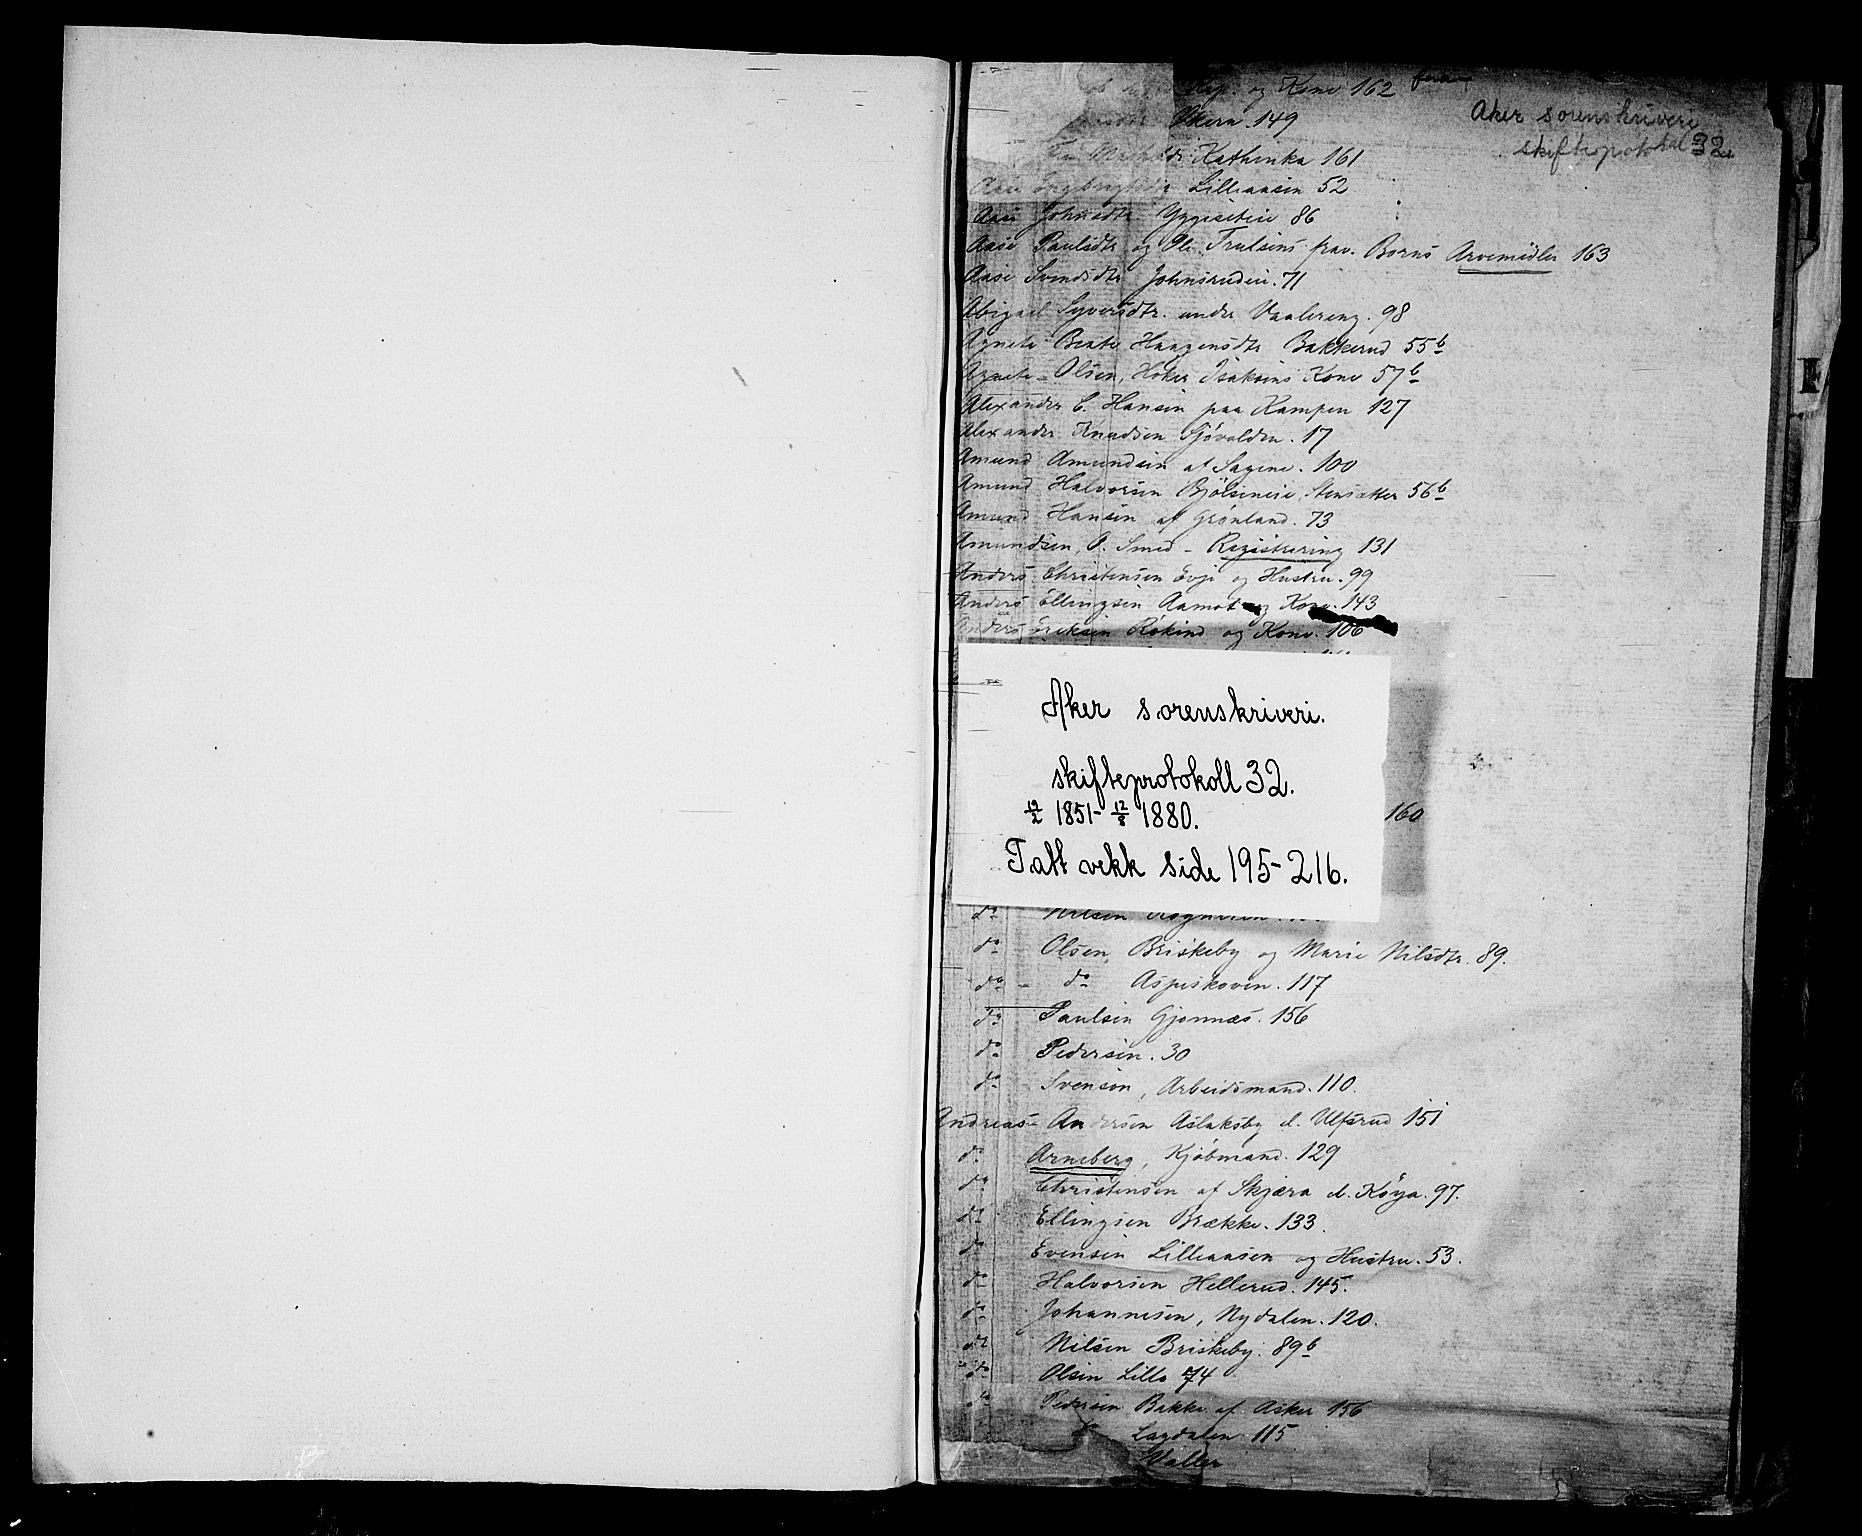 og Kone 162
Økern. 149
Aker sorenskriveri
skifteprotokol 32.
Kathinka 161
Lilleaasen 52
Aase Johnsdtr. Yggeseteie 86
Aase Paulsdtr og Ole Trulsens frav. Børns Arvemidler 163
Aase Svendsdtr Johnsrudeie. 71
Abigael Syversdtr. under Vaalereng. 98
Agnete Beate Haagensdtr Bakkerud 55b
Agnete Olsen, Høker Isaksens Kone 57b
Alexander C. Hansen paa Kampen 127
Alexander Knudsen Sjøvolden. 17
Amund Amundsen af Sagene. 100
Amund Halvorsen Bjølseneie. 56b
Amund Hansen af Grønland. 73
Amundsen, O. Smed - Registrering 131
Anders Christensen Evje og Hustru. 99
Anders Ellingsen Aamot og Kone. 143
Anders Eriksen Røkind og Kone. 106
Aker sorenskriveri.
skifteprotokoll 32.
19/2 1851- 12/8 1880.
Tatt vekk side 195-216.
160
do Nilsen
do Olsen, Briskeby og Marie Nilsdtr. 89.
do - do Aspeskoven. 117
do Paulsen Gjønnæs. 156
do Pedersen. 30
do Svenson, Arbeidsmand. 110.
Andreas Andersen Aslaksby el. Ulfsrud 151
do Arneberg, Kjøbmand. 129
do Christensen af Skjæra el. Køya. 97.
do Ellingsen Brække. 133.
do Evensen Lilleaasen og Hustru. 53.
do Halvorsen Hellerud. 145.
do Johannesen, Nydalen. 120.
do Nilsen Briskeby. 89b
do Olsen Lillo 74
do Pedersen Bakke af Asker 156
Lagdalen 115
Valler